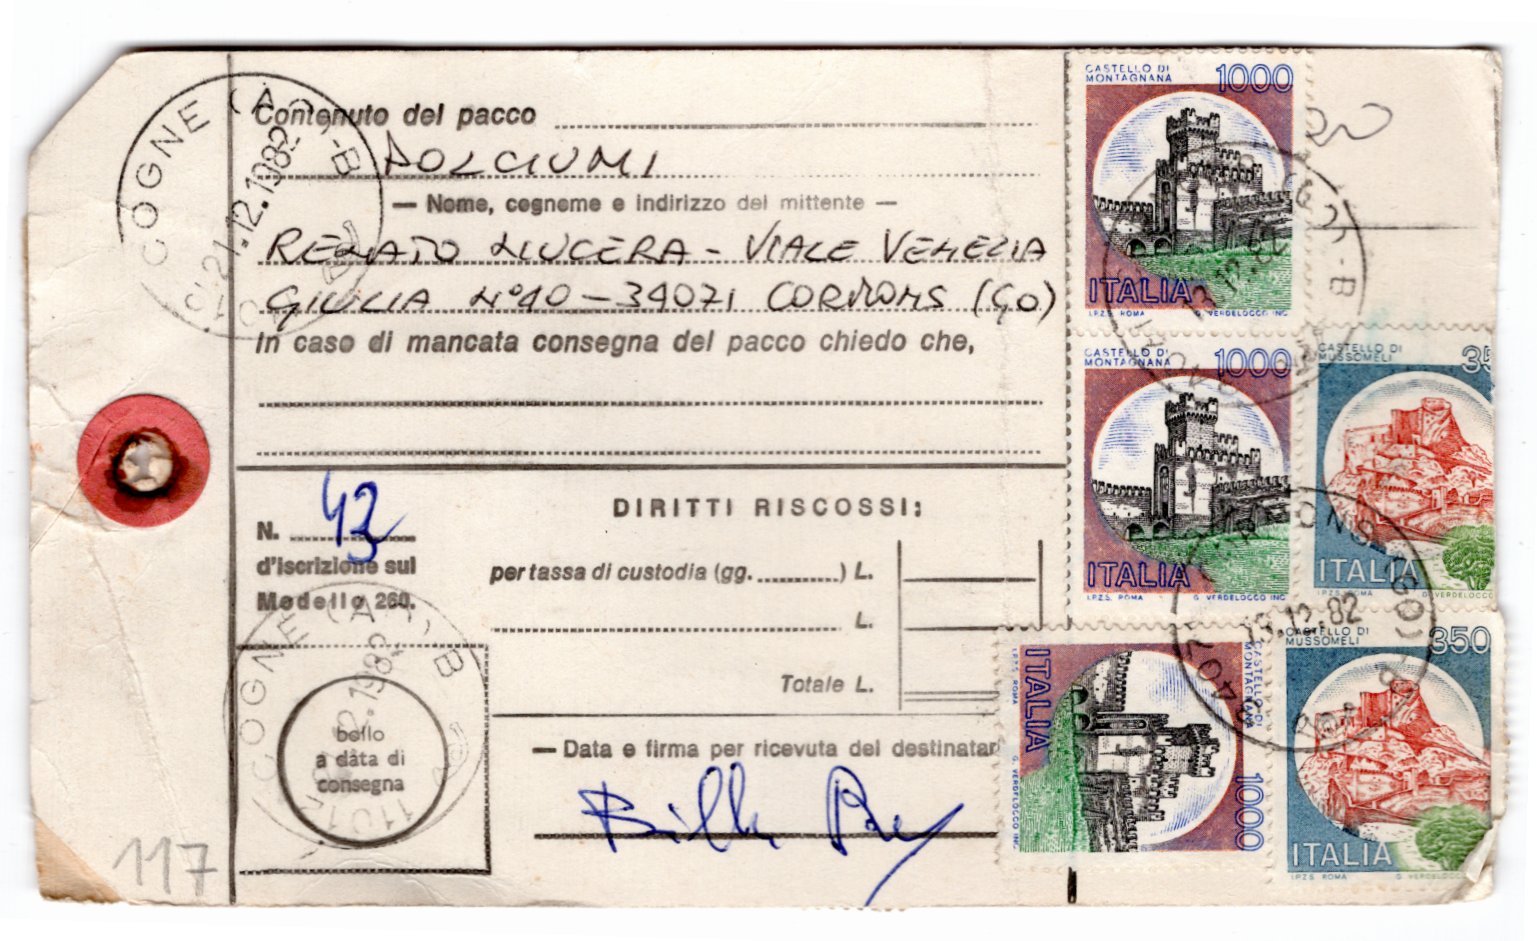 COGNE (AO) - B
21.12.1982
Contenuto del pacco
DOLCIUMI
— Nome, cognome e indirizzo del mittente —
RENATO NUCERA - VIALE VENEZIA
GIULIA N° 40 - 34071 CORMONS (GO)
In caso di mancata consegna del pacco chiedo che,
N. 43
d'iscrizione sul
Modello 260.
DIRITTI RISCOSSI:
per tassa di custodia (gg. ) L.
L.
Totale L.
bollo
a data di
consegna
— Data e firma per ricevuta del destinatar
117
CASTELLO DI
MONTAGNANA
1000
ITALIA
I.P.Z.S. ROMA
G. VERDELOCCO INC
CASTELLO DI
MONTAGNANA
1000
ITALIA
I.P.Z.S. ROMA
G. VERDELOCCO INC
CASTELLO DI
MUSSOMELI
35
ITALIA
I.P.Z.S. ROMA
G. VERDELOCCO
CASTELLO DI
MONTAGNANA
1000
ITALIA
I.P.Z.S. ROMA
G. VERDELOCCO INC.
CASTELLO DI
MUSSOMELI
350
ITALIA
I.P.Z.S. ROMA
G. VERDELOCCO
13.12.82
COGNE (AO) - B